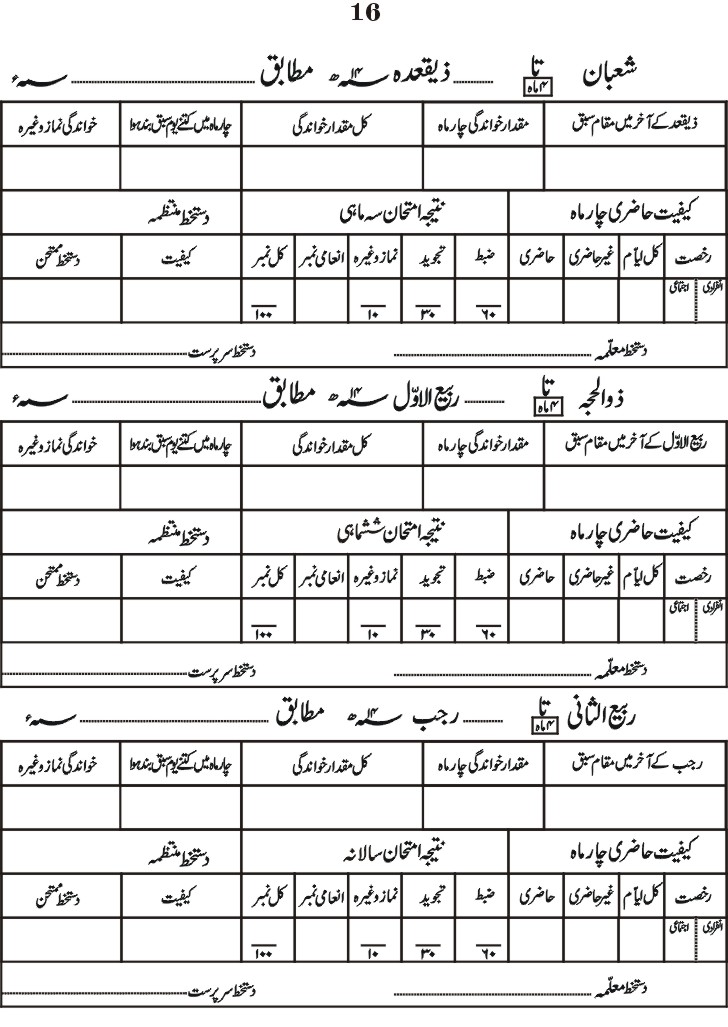 16
شعبان تا ۴ ماہ ............ ذیقعدہ ۱۴ھ مطابق ............ ء
ذیقعد کے آخر میں مقام سبق مقدار خواندگی چار ماہ کل مقدار خواندگی چار ماہ میں کتنے یوم سبق بند ہوا خواندگی نماز وغیرہ
کیفیت حاضری چار ماہ نتیجہ امتحان سہ ماہی دستخط منتظمہ
رخصت کل ایام غیر حاضری حاضری ضبط تجوید نماز وغیرہ انعامی نمبر کل نمبر کیفیت دستخط ممتحن
انفرادی اجتماعی ۶۰ ۳۰ ۱۰ ۱۰۰
دستخط معلّمہ ............ دستخط سرپرست ............
ذوالحجہ تا ۴ ماہ ............ ربیع الاوّل ۱۴ھ مطابق ............ ء
ربیع الاوّل کے آخر میں مقام سبق مقدار خواندگی چار ماہ کل مقدار خواندگی چار ماہ میں کتنے یوم سبق بند ہوا خواندگی نماز وغیرہ
کیفیت حاضری چار ماہ نتیجہ امتحان ششماہی دستخط منتظمہ
رخصت کل ایام غیر حاضری حاضری ضبط تجوید نماز وغیرہ انعامی نمبر کل نمبر کیفیت دستخط ممتحن
انفرادی اجتماعی ۶۰ ۳۰ ۱۰ ۱۰۰
دستخط معلّمہ ............ دستخط سرپرست ............
ربیع الثانی تا ۴ ماہ ............ رجب ۱۴ھ مطابق ............ ء
رجب کے آخر میں مقام سبق مقدار خواندگی چار ماہ کل مقدار خواندگی چار ماہ میں کتنے یوم سبق بند ہوا خواندگی نماز وغیرہ
کیفیت حاضری چار ماہ نتیجہ امتحان سالانہ دستخط منتظمہ
رخصت کل ایام غیر حاضری حاضری ضبط تجوید نماز وغیرہ انعامی نمبر کل نمبر کیفیت دستخط ممتحن
انفرادی اجتماعی ۶۰ ۳۰ ۱۰ ۱۰۰
دستخط معلّمہ ............ دستخط سرپرست ............